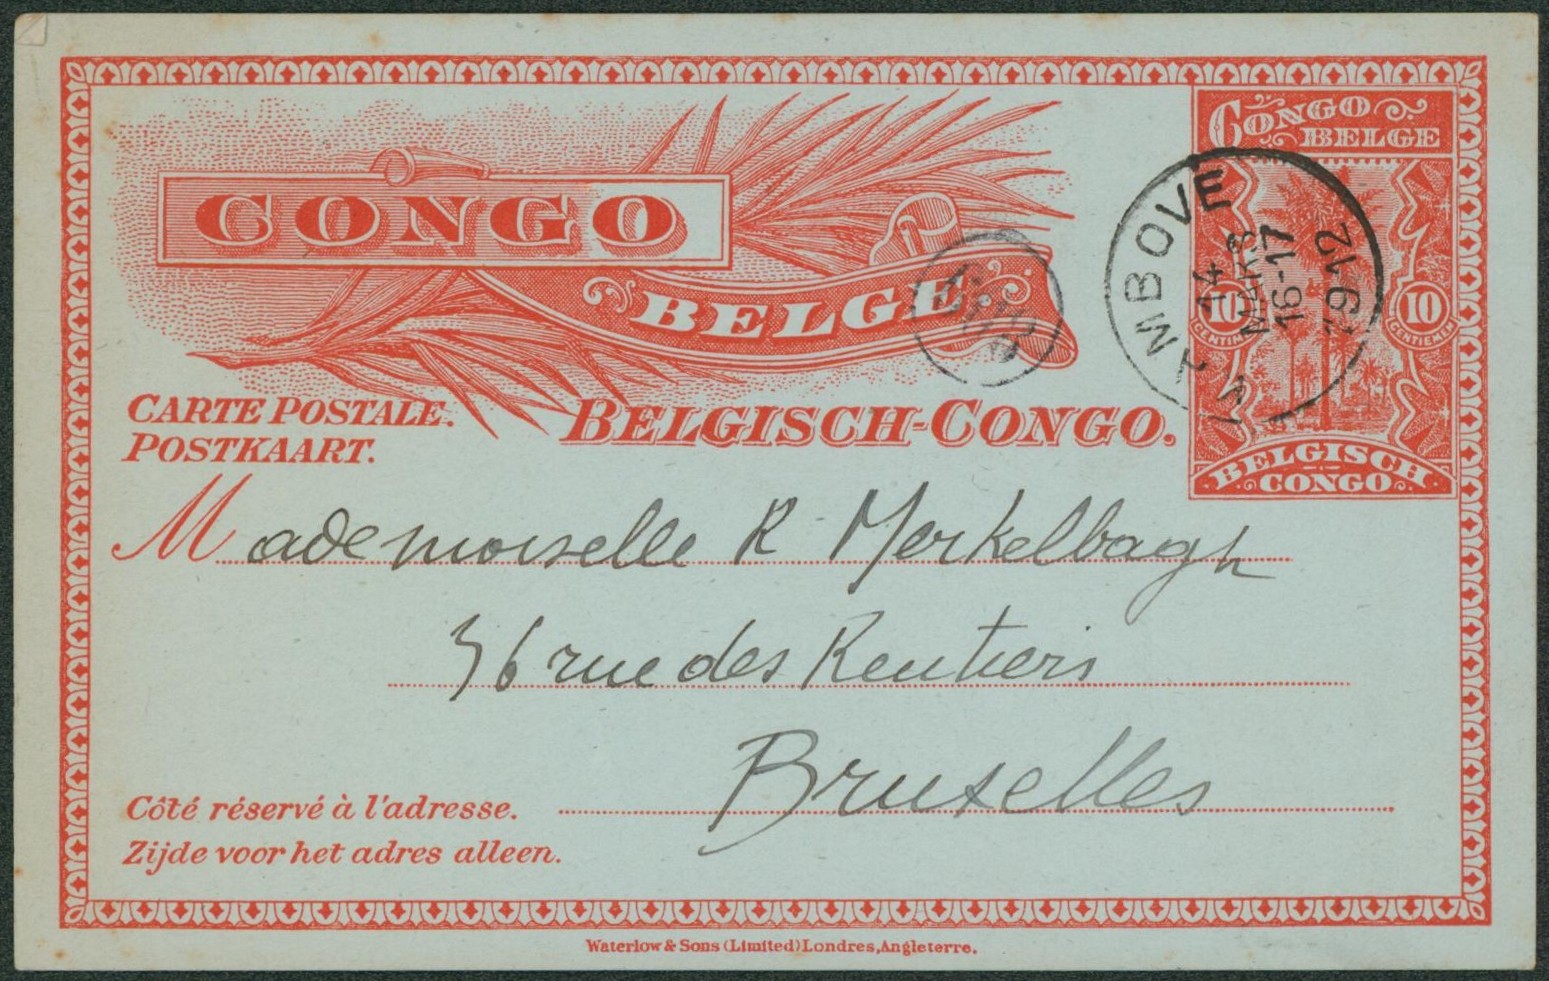 CONGO
BELGE
CARTE POSTALE.
POSTKAART.
BELGISCH-CONGO.
CONGO
BELGE
10
10
BELGISCH
CONGO
14
16-17
1912
Mademoiselle R Merkelbagh
36 rue des Rentiers
Bruxelles
Côté réservé à l'adresse.
Zijde voor het adres alleen.
Waterlow & Sons (Limited) Londres, Angleterre.